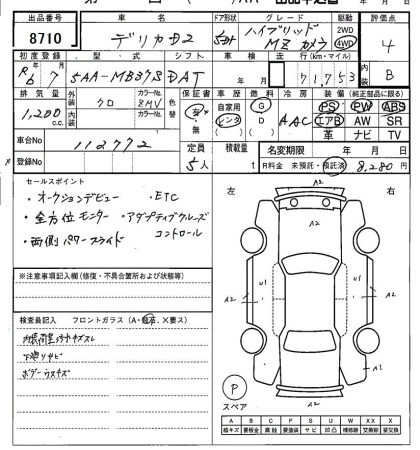 出品番号 車名 ドア形状 グレード 駆動 評価点
8710 デリカD2 5Dr ハイブリッド MZ カメラ 2WD 4WD 4
初度登録 型式 シフト 車検 走行(km・マイル) 内装
R6 7 5AA-MB37S DAT 年 月 71,753 B
排気量 外装 カラーNo. 色替 保証書 車歴 燃料 冷房 装備(純正部品に限る)
1,200 c.c. クロ ZMV 有・無 自家用 レンタ G D AAC PS PW ABS
内装 カラーNo. エアB AW SR
革 ナビ TV
車台No 112772 定員 5人 積載量 t 名変期限 年 月 日
登録No R料金 未預託・預託済 8,280円
セールスポイント
・オークションデビュー ・ETC
・全方位モニター ・アダプティブクルーズコントロール
・両側パワースライド
※注意事項記入欄(修復・不具合箇所および状態等)
検査員記入 フロントガラス(A・軽石、X要ス)
内装荷室 キズスレ
下廻りサビ
ボデーウスキズ
左 右
A2
A2
A2 U1 U1 A2
A1
A2
P
スペア
A B C P S U W X XX
線キズ 要板金 腐蝕 要塗装 サビ 凹凸 補修跡 交換跡 要交換